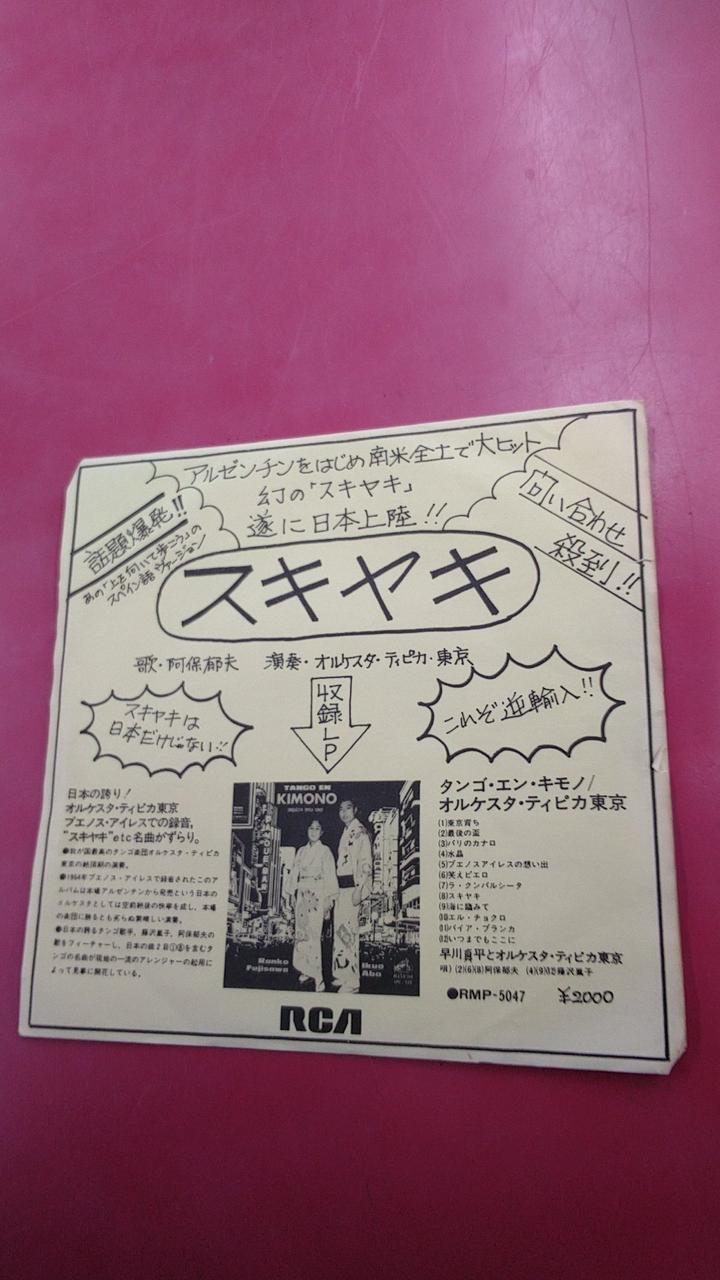 アルゼンチンをはじめ南米全土で大ヒット
幻の「スキヤキ」
遂に日本上陸!!
話題爆発!!
あの「上を向いて歩こう」の
スペイン語ヴァージョン
問い合わせ
殺到!!
スキヤキ
歌・阿保郁夫 演奏・オルケスタ・ティピカ・東京
スキヤキは
日本だけじゃない!!
収録LP
これぞ逆輸入!!
日本の誇り!
オルケスタ・ティピカ東京
ブエノス・アイレスでの録音,
"スキヤキ"etc名曲がずらり。
●我が国最高のタンゴ楽団オルケスタ・ティピカ
東京の絶頂期の演奏。
●1964年ブエノス・アイレスで録音されたこのア
ルバムは本場アルゼンチンから発売という日本の
オルケスタとしては空前絶後の快挙を成し、本場
の楽団に勝るとも劣らぬ素晴しい演奏。
●日本の誇るタンゴ歌手、藤沢嵐子、阿保郁夫の
歌をフィーチャーし、日本の曲2曲①⑧を含むタ
ンゴの名曲が現地の一流のアレンジャーの起用に
よって見事に開花している。
TANGO EN
KIMONO
Ranko
Fujisawa
Ikuo
Abo
タンゴ・エン・キモノ/
オルケスタ・ティピカ東京
(1)東京育ち
(2)最後の盃
(3)パリのカナロ
(4)水晶
(5)ブエノスアイレスの想い出
(6)笑えピエロ
(7)ラ・クンパルシータ
(8)スキヤキ
(9)海に臨みて
(10)エル・チョクロ
(11)バイア・ブランカ
(12)いつまでもここに
早川真平とオルケスタ・ティピカ東京
唄)(2)(6)(8)阿保郁夫 (4)(9)(12)藤沢嵐子
●RMP-5047 ¥2000
RCA